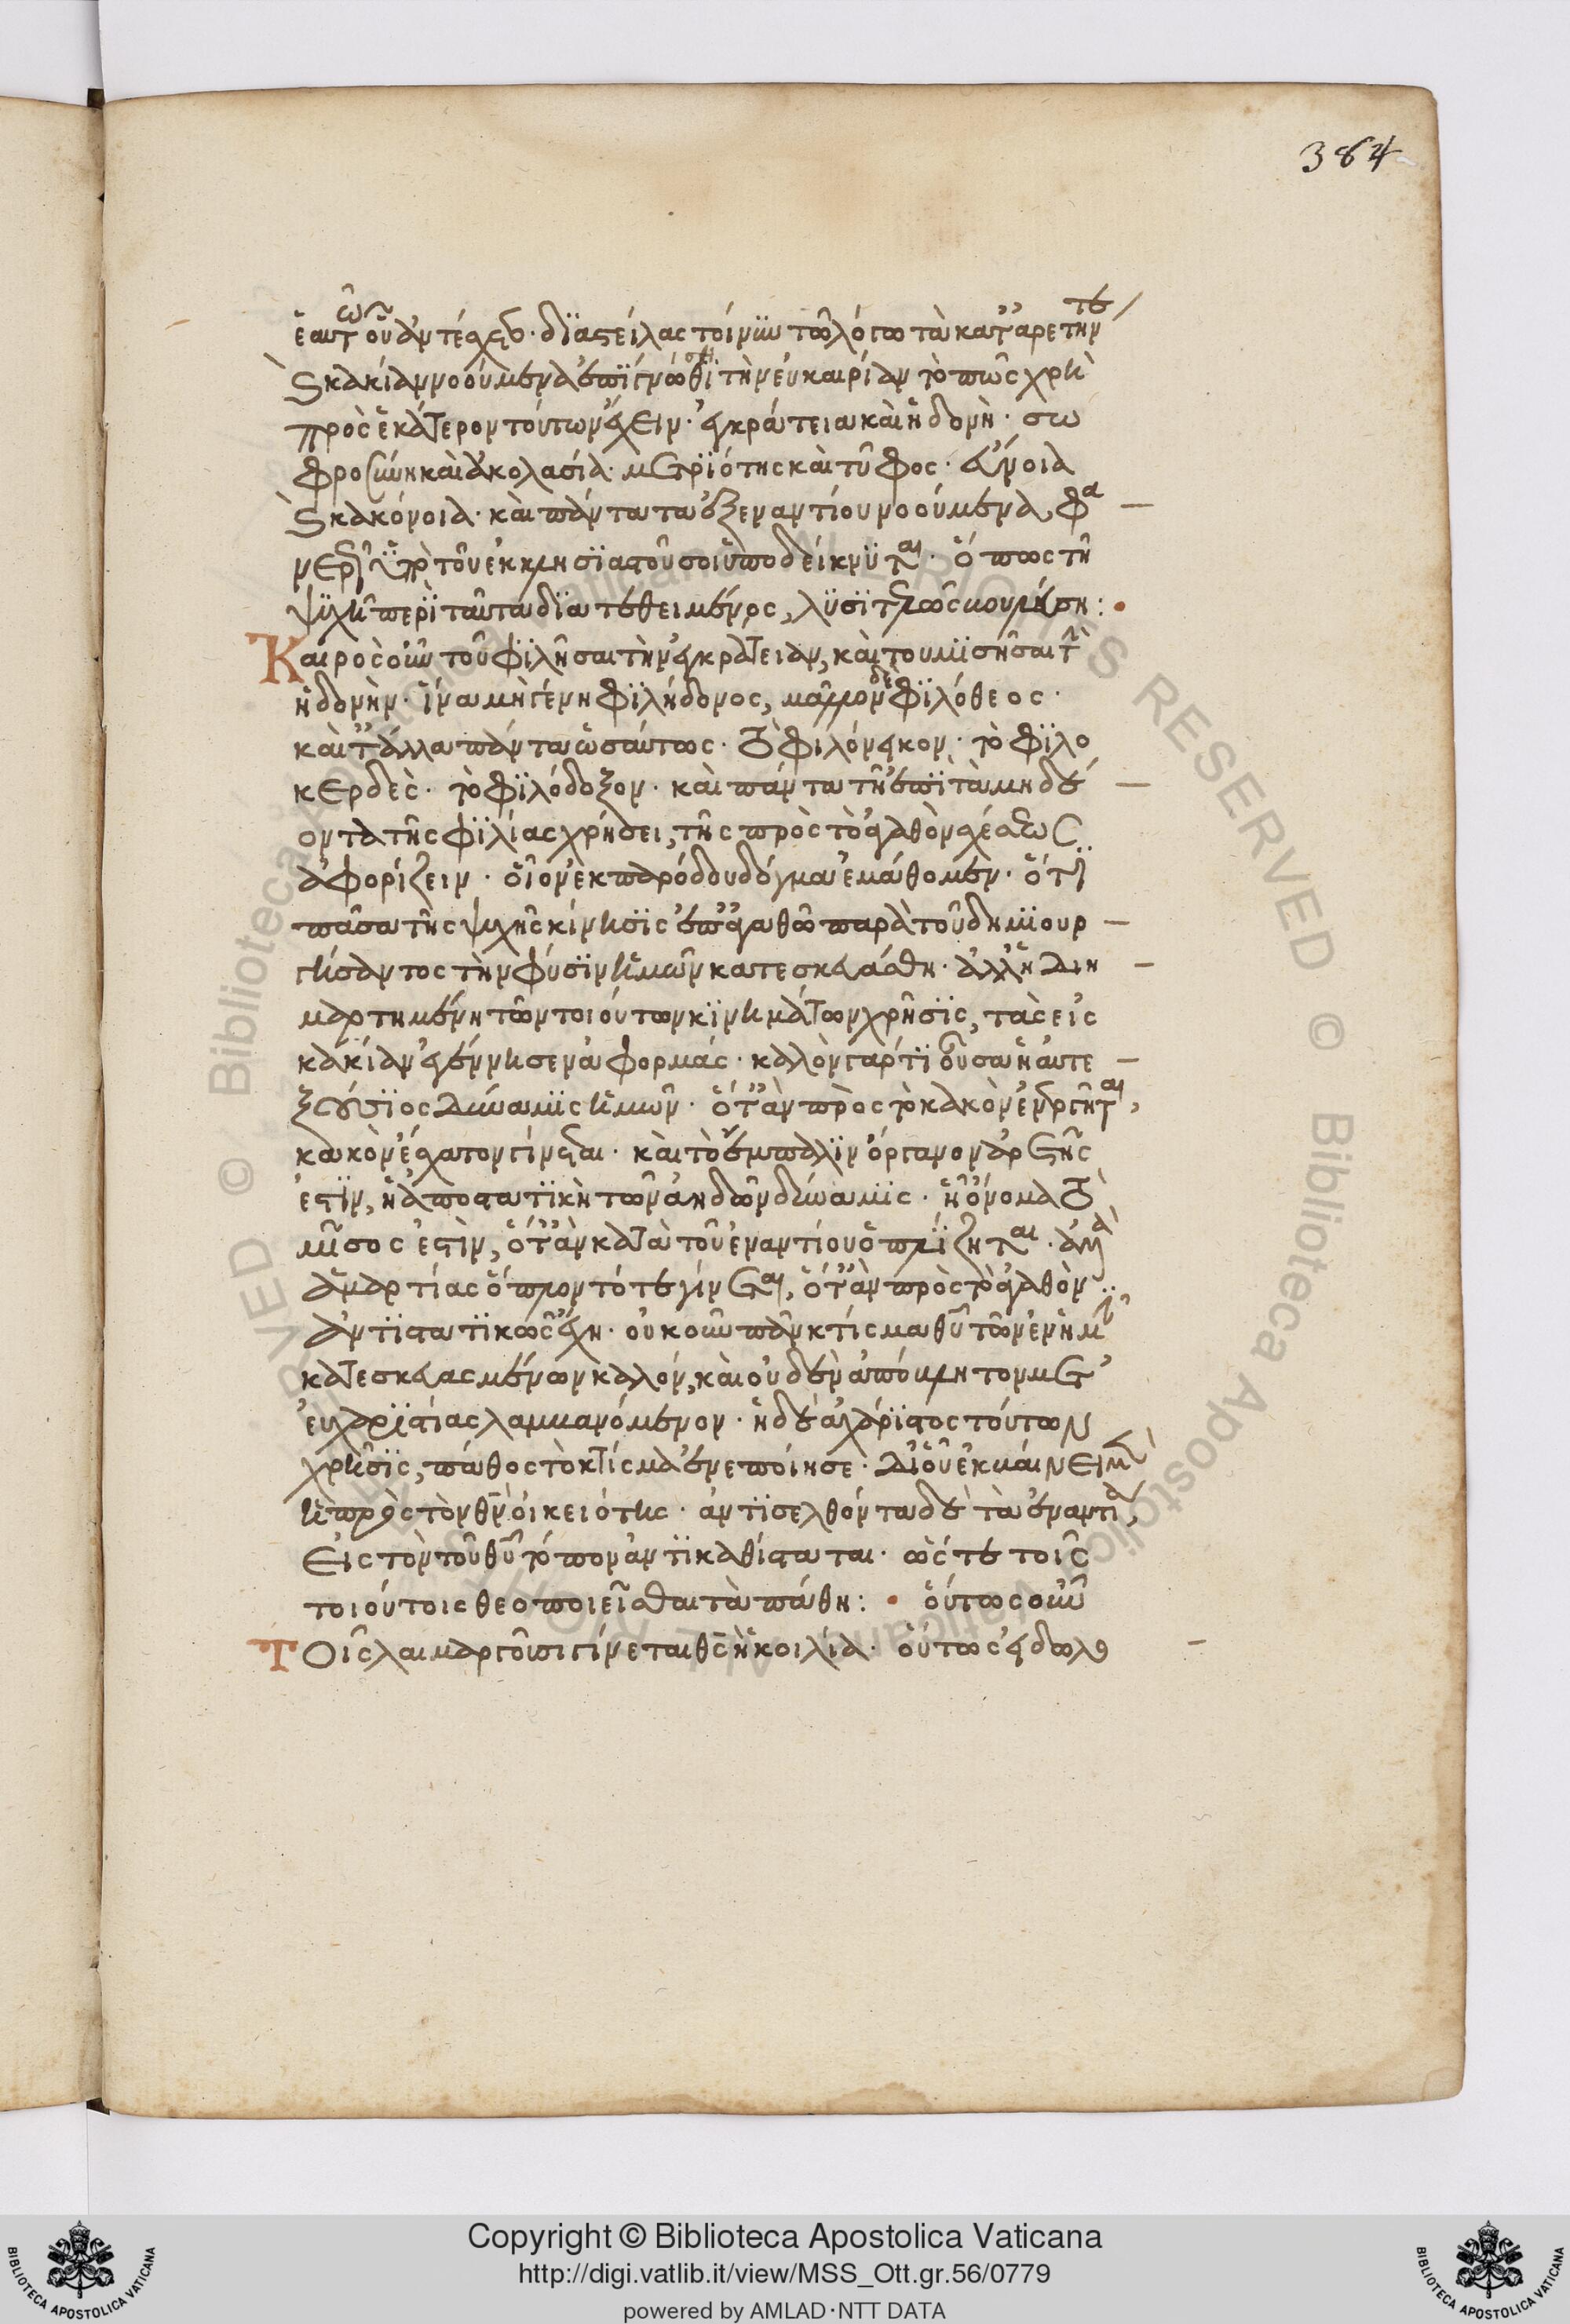 384
ἑαυτῶν οὖν ἀντέχεσθαι· διαστείλας τοίνυν τῶ λόγω τὰ κατ' ἀρετήν τε
καὶ κακίαν νοούμενα ἐπίγνωθι τὴν εὐκαιρίαν τὸ πῶς χρὴ
πρὸς ἑκάτερον τούτων ἔχειν· ἐγκράτεια καὶ ἡδονή· σω
φροσύνη καὶ ἀκολασία· μετριότης καὶ τῦφος· εὔνοια
καὶ κακόνοια· καὶ πάντα τὰ ἐξ ἐναντίου νοούμενα, φα
νερῶς παρὰ τοῦ ἐκκλησιαστοῦ σοι ὑποδείκνυται· ὅπως τῆ
ψυχῆ περὶ ταῦτα διατεθειμένος, λυσιτελῶς βουλεύση:
Καιρὸς οὖν τοῦ φιλῆσαι τὴν ἐγκράτειαν, καὶ τοῦ μισῆσαι τὴν
ἡδονήν· ἵνα μὴ γένη φιλήδονος, μᾶλλον δὲ φιλόθεος·
καὶ τἄλλα πάντα ὡσαύτως· τὸ φιλόνεικον· τὸ φιλο
κερδές· τὸ φιλόδοξον· καὶ πάντα τῆ ἐπὶ τὰ μὴ δέ
οντα τῆς φιλίας χρήσει, τῆς πρὸς τὸ ἀγαθὸν σχέσεως
ἀφορίζειν· οἷον ἐκ παρόδου δόγμα ἐμάθομεν· ὅτι
πᾶσα τῆς ψυχῆς κίνησις ἐπ' ἀγαθῶ παρὰ τοῦ δημιουρ
γήσαντος τὴν φύσιν ἡμῶν κατεσκευάσθη· ἀλλ' ἡ διη
μαρτημένη τῶν τοιούτων κινημάτων χρῆσις, τὰς εἰς
κακίαν ἐγέννησεν ἀφορμάς· καλὸν γάρ τι οὖσα ἡ αὐτε
ξούσιος δύναμις ἡμῶν· ὅταν πρὸς τὸ κακὸν ἐνεργῆται,
κακὸν ἔσχατον γίνεται· καὶ τὸ ἔμπαλιν ὄργανον ἀρετῆς
ἐστιν, ἡ ἀποστατικὴ τῶν ἀηδῶν δύναμις· ἧ ὄνομα τὸ
μῖσος ἐστὶν, ὅταν κατὰ τοῦ ἐναντίου ὁπλίζηται· ἀλλὰ
ἁμαρτίας ὅπλον τότε γίνεται, ὅταν πρὸς τὸ ἀγαθὸν
ἀντιστατικῶς ἔχη· οὐκοῦν πᾶν κτίσμα θῦ τῶν ἐν ἡμῖν
κατεσκευασμένων καλόν, καὶ οὐδὲν ἀπόβλητον μετ'
εὐχαριστίας λαμβανόμενον· ἡ δὲ ἀχάριστος τούτων
χρῆσις, πάθος τὸ κτίσμα ἐνεποίησε· δι' οὗ ἐκβαίνει μὲν
ἡ πρὸς τὸν θν οἰκειότης· ἀντισελθόντα δὲ τὰ ἐναντία,
εἰς τὸν τοῦ θῦ τόπον ἀντικαθίσταται· ὥστε τοῖς
τοιούτοις θεοποιεῖσθαι τὰ πάθη: οὕτως οὖν
Τοῖς λαιμάργοισι γίνεται θς ἡ κοιλία· οὕτως εἴδωλο
Copyright © Biblioteca Apostolica Vaticana
http://digi.vatlib.it/view/MSS_Ott.gr.56/0779
powered by AMLAD·NTT DATA